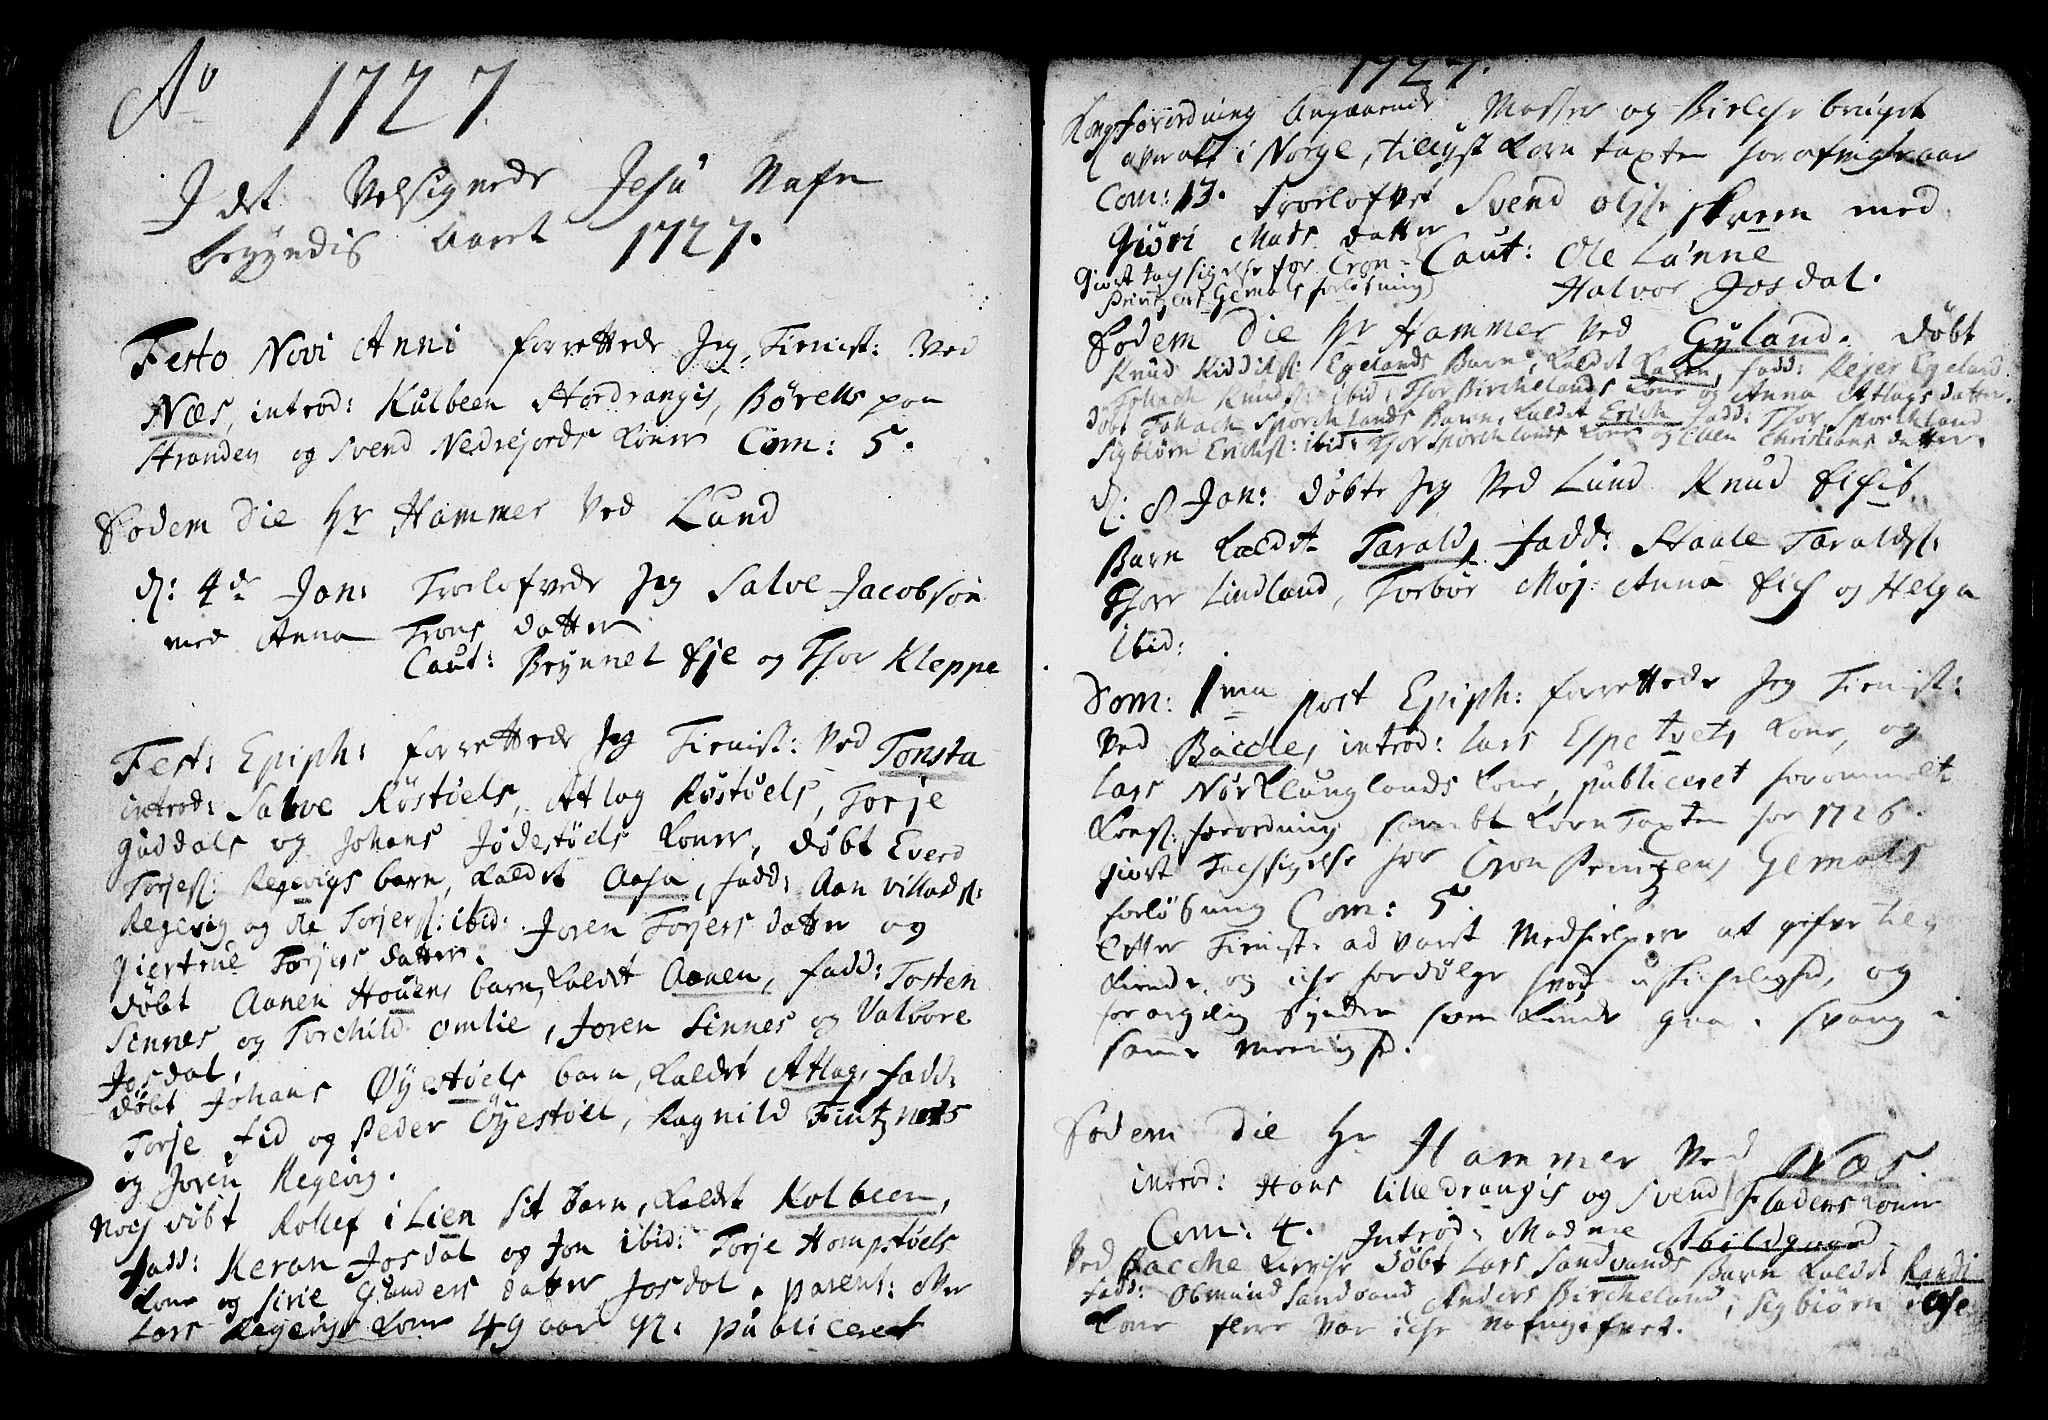 Ao 1727
I det Velsignede Jesu Nafn
begyndis Aaret 1727.
Festo Novi Anni forrettede Jeg Tienist: ved
Næs, introd: Kulbeen Hordrangis, Børells paa
Stranden og Svend Nedrejords koner Com: 5.
Eodem die hr Hammer ved Lund
d: 4de Jan: Troelofvede Jeg Salve Jacobsøn
med Anna Trons datter
Caut: Brynnel Eje og Thor Kleppe
Fest: Epiph: forrettede Jeg Tienist: ved Tonsta
introd: Salve Røstøels, Atlag Røstøels, Torje
Guddals og Johans Jødestøels koner, døbt Everd
Torjes: Regevigs barn, kaldet Aasa, fadd: Aan villads:
Regevig og Ole Torjers: ibid: Joren Torjers datter og
Giertrue Torjers datter.
døbt Aanen Houens barn, kaldet Aanen, fadd: Tosten
Sinnes og Torchild Omlie, Joren Sinnes og Valbore
Josdal.
døbt Johans Øyestøels barn, kaldet Atlag, fadd:
Torje Fid og Peder Øyestøel, Ragnild Fintznes
og Joren Regevig.
noch døbt Rollef i Lien sit barn, kaldet Kolbeen,
fadd: Keran Josdal og Jon ibid: Torje Hompstøels
kone og Sirie Gunders datter Josdal. parent: over
Lars Regevigs kone 49 aar gl: publiceret
1727.
Kongs forordning Angaaende Masser og Birkhe bruget
overalt i Norge, tillyst korn taxten for afvigte aar
Com: 13. Troelofvet Svend Ols: skaren med
Giøri Mads datter Caut: Ole Lunne
Halvor Josdal.
Giort tachsigelse for Cron-
Printzens Gemals forløsning
Eodem die hr Hammer ved Gyland. døbt
Knud Kiddils: Egelands Barn, kaldet Karen, fadd: Rejer Egeland
Tollach Knuds: ibid, Thor Birchelands kone og Anna Atlags datter.
døbt Tollach Sporchlands Barn, kaldet Erich fadd: Thor Sporkland
Sigbiørn Erichs: ibid: Thor Sporchlands kone og Ellen Christians datter.
d: 8 Jan: døbte Jeg ved Lund Knud Eichis
Barn kaldet Tarald, fadd: Staale Taralds:
Thore Lindland, Torbør Moj. Anna Eich og Helga
ibid:
Dom: 1ma post Epiph: forrettede Jeg Tienist:
ved Bacche, introd: Lars Espetvets kone, og
Lars Nørklunglands kone, publiceret forommelte
Kongs: forordning sambt korn Taxten for 1726.
giort Tachsigelse for Cron Printzens Gemals
forløsning Com: 5.
Efter Tienist: ad varet Medhielpere at gifve tilg
kiende, og iche fordølge hvad uskichelighed, og
forargelig Synder som kunde gaa i svang i
samme menighed.
Eodem die hr Hammer ved Næs.
introd: Hans lilledrangis og Svend Fladens koner
Com: 4. Introd: Madme Abildgaard.
Ved Bacche kirche døbt Lars Sandvands Barn kaldet Randi
fadd: Obmund Sandvand, Anders Bircheland, Sigbiørn Ose
kone flere var iche nafngifvet.